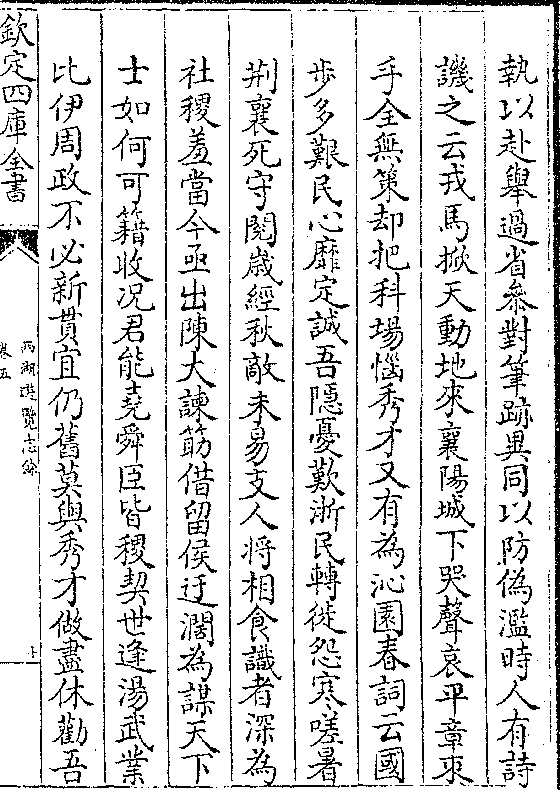 執以赴舉過省叅對筆跡異同以防偽濫時人有詩
譏之云戎馬掀天動地來襄陽城下哭聲哀平章束
手全無策却把科場惱秀才又有為沁園春詞云國
歩多艱民心靡定誠吾隱憂歎浙民轉徙怨寒嗟暑
荆襄死守閱歲經秋敵未易支人將相食識者深為
社稷羞當今亟出陳大諫筯借留侯迂濶為謀天下
士如何可籍收况君能堯舜臣皆稷契世逢湯武業
比伊周政不必新貫宜仍舊莫與秀才做盡休勸吾
欽定四庫全書
西湖遊覽志餘
卷五